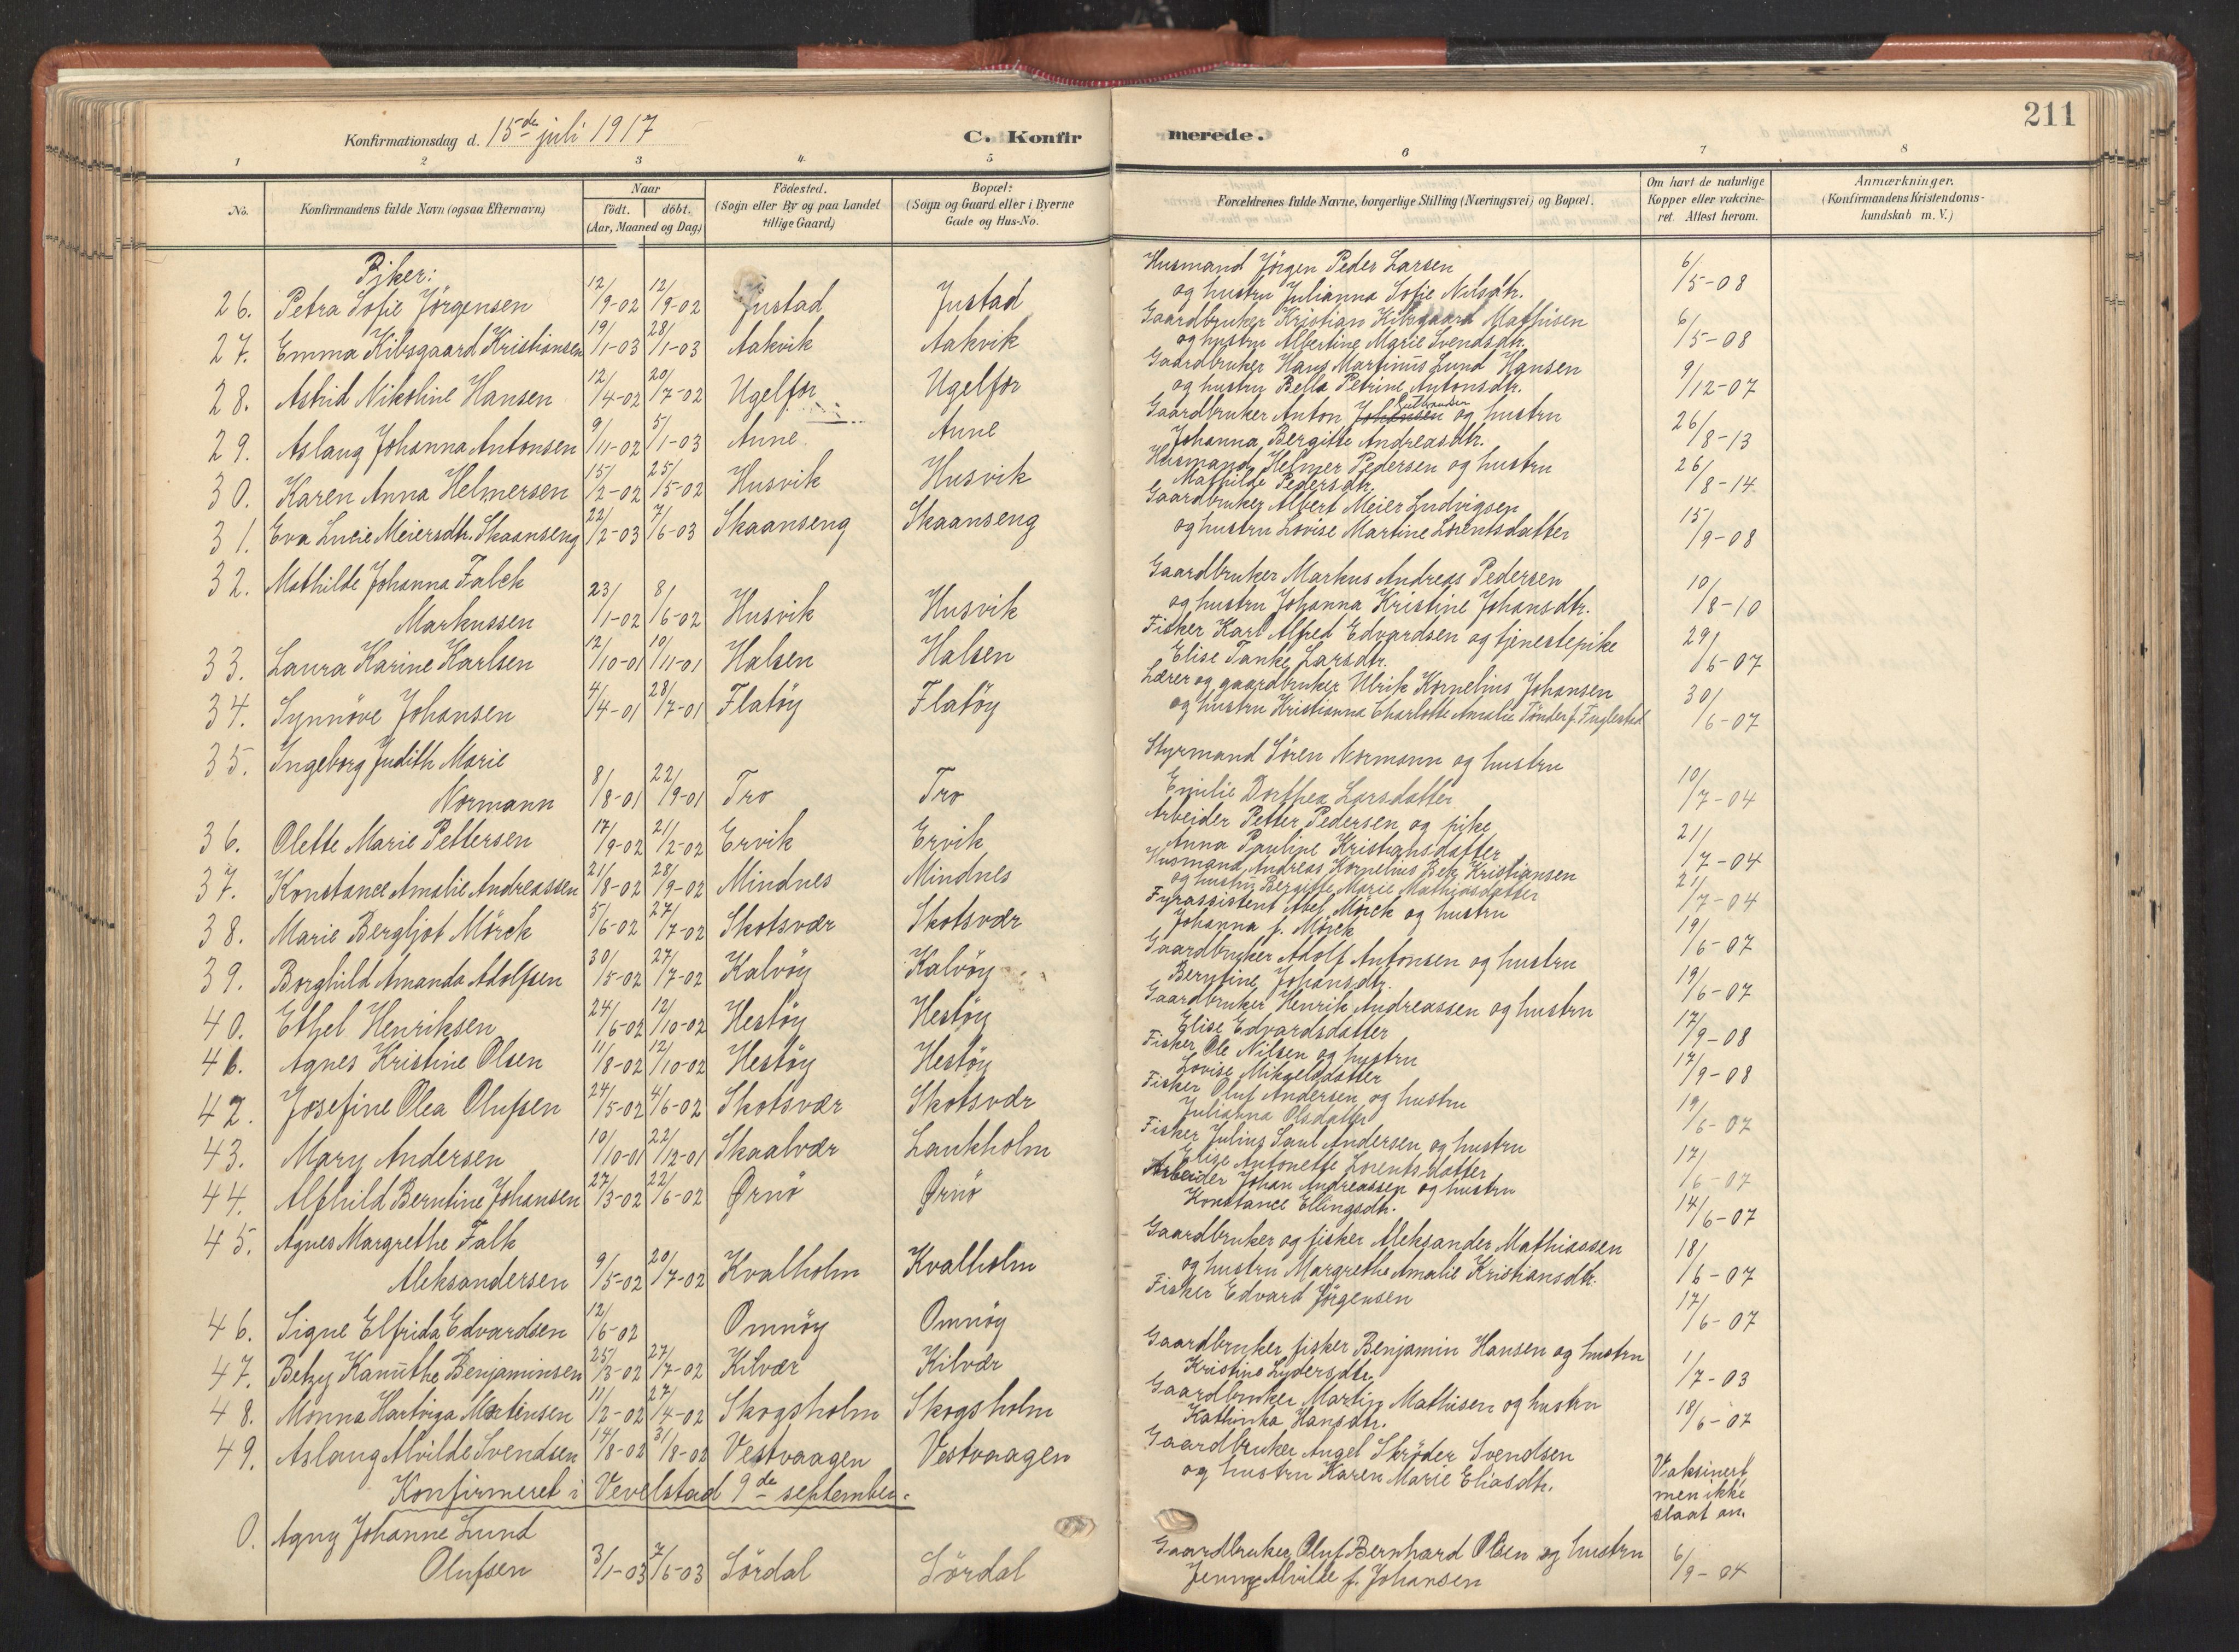 211
Konfirmationsdag d. 15de juli 1917
C. Konfirmerede.
1 2 3 4. 5 6 7 8
No. Konfirmandens fulde Navn (ogsaa Efternavn) Naar født. døbt. (Aar, Maaned og Dag) Födested. (Sogn eller By og paa Landet tillige Gaard) Bopæl: (Sogn og Gaard eller i Byerne Gade og Hus-No. Forældrenes fulde Navne, borgerlige Stilling (Næringsvei) og Bopæl. Om havt de naturlige Kopper eller vakcineret. Attest herom. Anmærkninger. (Konfirmandens Kristendomskundskab m. V.)
Piker:
26. Petra Sofie Jörgensen 12/9-02 12/9-02 Justad Justad Husmand Jörgen Peder Larsen og hustru Julianna Sofie Nilsdtr. 6/5-08
27. Emma Kibsgaard Kristiansen 19/1-03 28/1-03 Aakvik Aakvik Gaardbruker Kristian Kibsgaard Mathisen og hustru Albertine Marie Svendsdtr. 6/5-08
28. Astrid Nikoline Hansen 12/4-02 20/7-02 Ugelfor Ugelfor Gaardbruker Hans Martinus Lund Hansen og hustru Bella Petrine Antonsdtr. 9/12-07
29. Aslaug Johanna Antonsen 9/11-02 5/1-03 Anne Anne Gaardbruker Anton Johansen og hustru Johanna Bergitte Andreasdtr. 26/8-13
30. Karen Anna Helmersen 15/2-02 25/5-02 Husvik Husvik Husmand Helmer Pedersen og hustru Mathilde Pedersdtr. 26/8-14
31. Eva Lucie Meiersdtr. Skaanseng 22/2-03 7/6-03 Skaanseng Skaanseng Gaardbruker Albert Meier Ludvigsen og hustru Lovise Martine Lorentsdatter 15/9-08
32. Mathilde Johanna Falck Markussen 23/1-02 8/6-02 Husvik Husvik Gaardbruker Markus Andreas Pedersen og hustru Johanna Kristine Johansdtr. 10/8-10
33. Laura Karine Karlsen 12/10-01 19/11-01 Halsen Halsen Fisker Karl Alfred Edvardsen og tjenestepike Elise Tanke Larsdtr. 29/6-07
34. Synnöve Johansen 4/4-01 28/7-01 Flatöy Flatöy Lærer og gaardbruker Ulrik Kornelius Johansen og hustru Kristianna Charlotte Amalie Tönder f. Fuglestad 30/6-07
35. Ingeborg Judith Marie Normann 8/8-01 22/9-01 Tro Tro Styrmand Sören Normann og hustru Emilie Dorthea Larsdatter 10/7-04
36. Olette Marie Pettersen 17/9-02 21/12-02 Ervik Ervik Arbeider Petter Pedersen og pike Anna Pauline Kristiansdatter 21/7-04
37. Konstance Amalie Andreassen 21/8-02 28/9-02 Mindnes Mindnes Husmand Andreas Kornelius Bek Kristiansen og hustru Bergitte Marie Mathiasdatter 21/7-04
38. Marie Bergljot Mörck 5/6-02 27/7-02 Skotsvær Skotsvær Fyrassistent Abel Mörck og hustru Johanna f. Mörck 19/6-07
39. Borghild Amanda Adolfsen 30/5-02 27/7-02 Kalvöy Kalvöy Gaardbruker Adolf Antonsen og hustru Berntine Johansdtr. 19/6-07
40. Ethel Henriksen 24/6-02 12/10-02 Hestöy Hestöy Gaardbruker Henrik Andreassen og hustru Elise Edvardsdatter 17/9-08
41. Agnes Kristine Olsen 11/8-02 12/10-02 Hestöy Hestöy Fisker Ole Nilsen og hustru Lovise Mikaelsdatter 17/9-08
42. Josefine Olea Olufsen 24/5-02 4/6-02 Skotsvær Skotsvær Fisker Oluf Andersen og hustru Julianna Olsdatter 19/6-07
43. Mary Andersen 10/10-01 22/12-01 Skaalvær Laukholm Fisker Julius Saul Andersen og hustru Elise Antonette Lorentsdatter 17/6-07
44. Alfhild Berntine Johansen 27/3-02 22/6-02 Ørnö Ørnö Arbeider Johan Andreassen og hustru Konstance Ellingsdtr. 14/6-07
45. Agnes Margrethe Falk Aleksandersen 9/5-02 20/7-02 Kvalholm Kvalholm Gaardbruker og fisker Aleksander Mathiassen og hustru Margrethe Amalie Kristiansdtr. 18/6-07
46. Signe Elfrida Edvardsen 12/6-02 Omnöy Omnöy Fisker Edvard Jörgensen 17/6-07
47. Betzy Kanuthe Benjaminsen 25/3-02 27/7-02 Kilvær Kilvær Gaardbruker fisker Benjamin Hansen og hustru Kristine Lydersdtr. 1/7-03
48. Monna Hartviga Martinsen 11/2-02 27/4-02 Skogsholm Skogsholm Gaardbruker Martin Mathisen og hustru Kathinka Hansdtr. 18/6-07
49. Aslaug Alvilde Svendsen 14/8-02 31/8-02 Vestvaagen Vestvaagen Gaardbruker Angel Skröder Svendsen og hustru Karen Marie Eliasdtr. Vaksinert, men ikke slaat an.
Konfirmeret i Vevelstad 9de september.
0. Agny Johanne Lund Olufsen 3/1-03 7/6-03 Sördal Sördal Gaardbruker Oluf Bernhard Olsen og hustru Jenny Alvilde f. Johansen 6/9-04